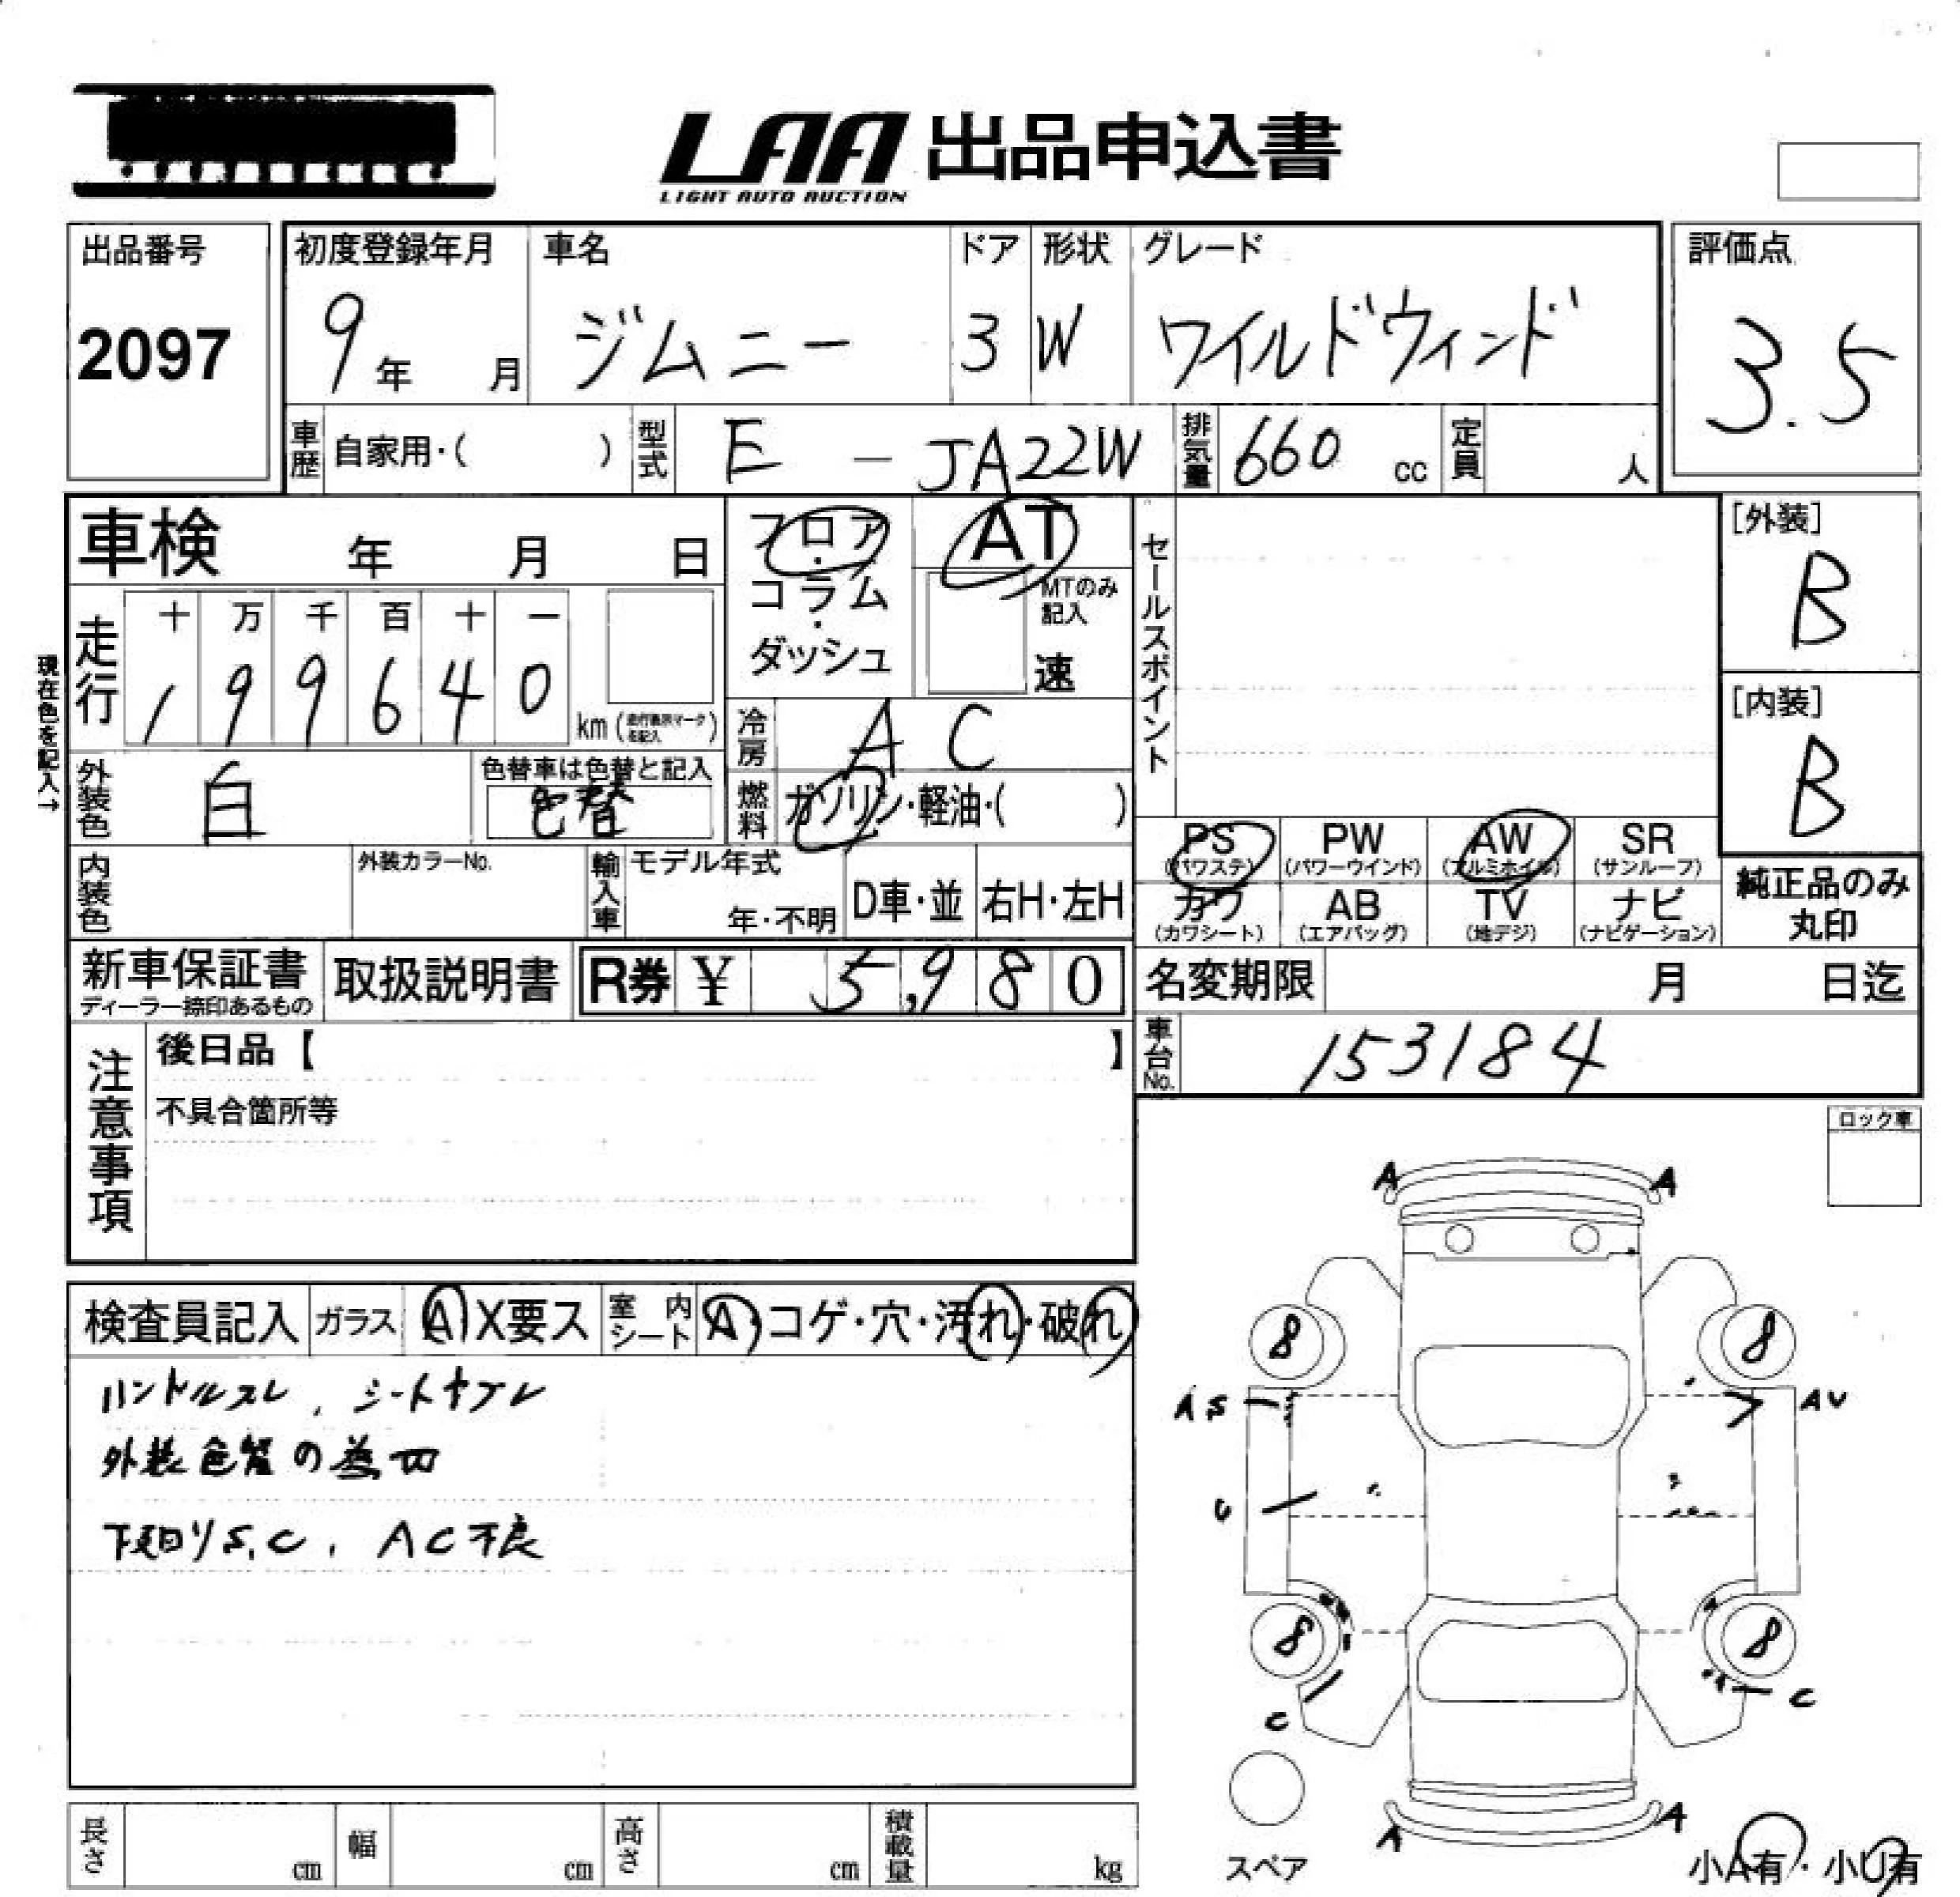 LAA 出品申込書
LIGHT AUTO AUCTION
出品番号
2097
初度登録年月
9年 月
車名
ジムニー
ドア
3
形状
W
グレード
ワイルドウィンド
評価点
3.5
車歴 自家用・( )
型式 E - JA22W
排気量 660 cc
定員 人
車検 年 月 日
フロア・コラム・ダッシュ
AT
MTのみ記入
速
セールスポイント
[外装]
B
[内装]
B
現在色を記入→
走行
十 万 千 百 十 一
1 9 9 6 4 0
km (走行表示マークを記入)
冷房 AC
外装色 白
色替車は色替と記入
色替
燃料 ガソリン・軽油・( )
PS (パワステ)
PW (パワーウインド)
AW (アルミホイル)
SR (サンルーフ)
カワ (カワシート)
AB (エアバッグ)
TV (地デジ)
ナビ (ナビゲーション)
純正品のみ丸印
内装色
外装カラーNo.
輸入車
モデル年式
年・不明
D車・並
右H・左H
新車保証書
ディーラー捺印あるもの
取扱説明書
R券 ¥ 5,980
名変期限 月 日迄
車台No. 153184
注意事項
後日品【 】
不具合箇所等
ロック車
検査員記入
ガラス A X要ス
室内シート A・コゲ・穴・汚れ・破れ
ハンドルスレ, シートヤブレ
外装色替の為 四
下廻りS,C, AC不良
A A
8 8
AS AU
U
8 8
C C
A A
スペア
小A有・小U有
長さ cm
幅 cm
高さ cm
積載量 kg